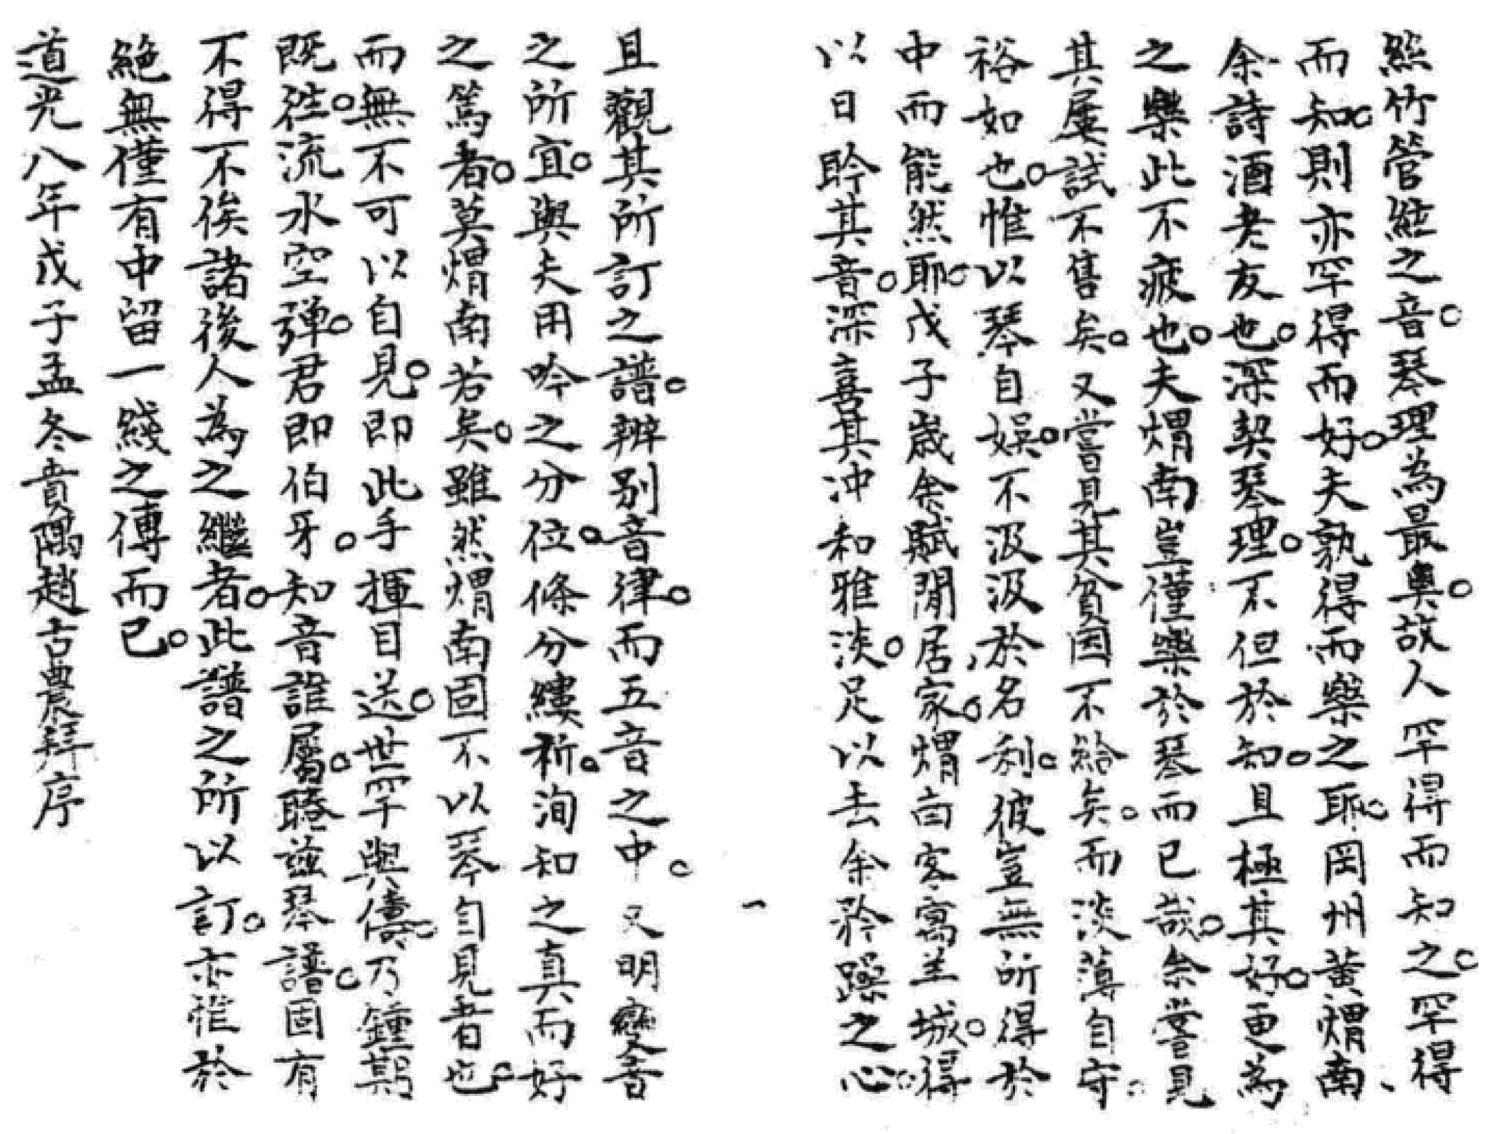 絲竹管絃之音。琴理為最奧。故人罕得而知之。罕得
而知。則亦罕得而好。夫孰得而樂之耶。岡州黃煟南、
余詩酒老友也。深契琴理。不但於知。且極其好。更為
之樂此不疲也。夫煟南豈僅樂於琴而已哉。余嘗見
其屢試不售矣。又嘗見其貧因不給矣。而淡薄自守。
裕如也。惟以琴自娛。不汲汲於名利。彼豈無所得於
中而能然耶。戊子歲余賦閒居家。煟南客寓羊城。得
以日聆其音。深喜其冲和雅淡。足以去余矜躁之心。
且觀其所訂之譜。辨別音律。而五音之中。又明變音
之所宜。與夫用吟之分位。條分縷析。洵知之真而好
之篤者。莫煟南若矣。雖然煟南固不以琴自見者也。
而無不可以自見。即此手揮目送。世罕與儔。乃鍾期
既往。流水空彈。君即伯牙。知音誰屬。聽茲琴譜。固有
不得不俟諸後人為之繼者。此譜之所以訂。亦惟於
絕無僅有中留一綫之傳而已。
道光八年戊子孟冬賁隅趙古農拜序